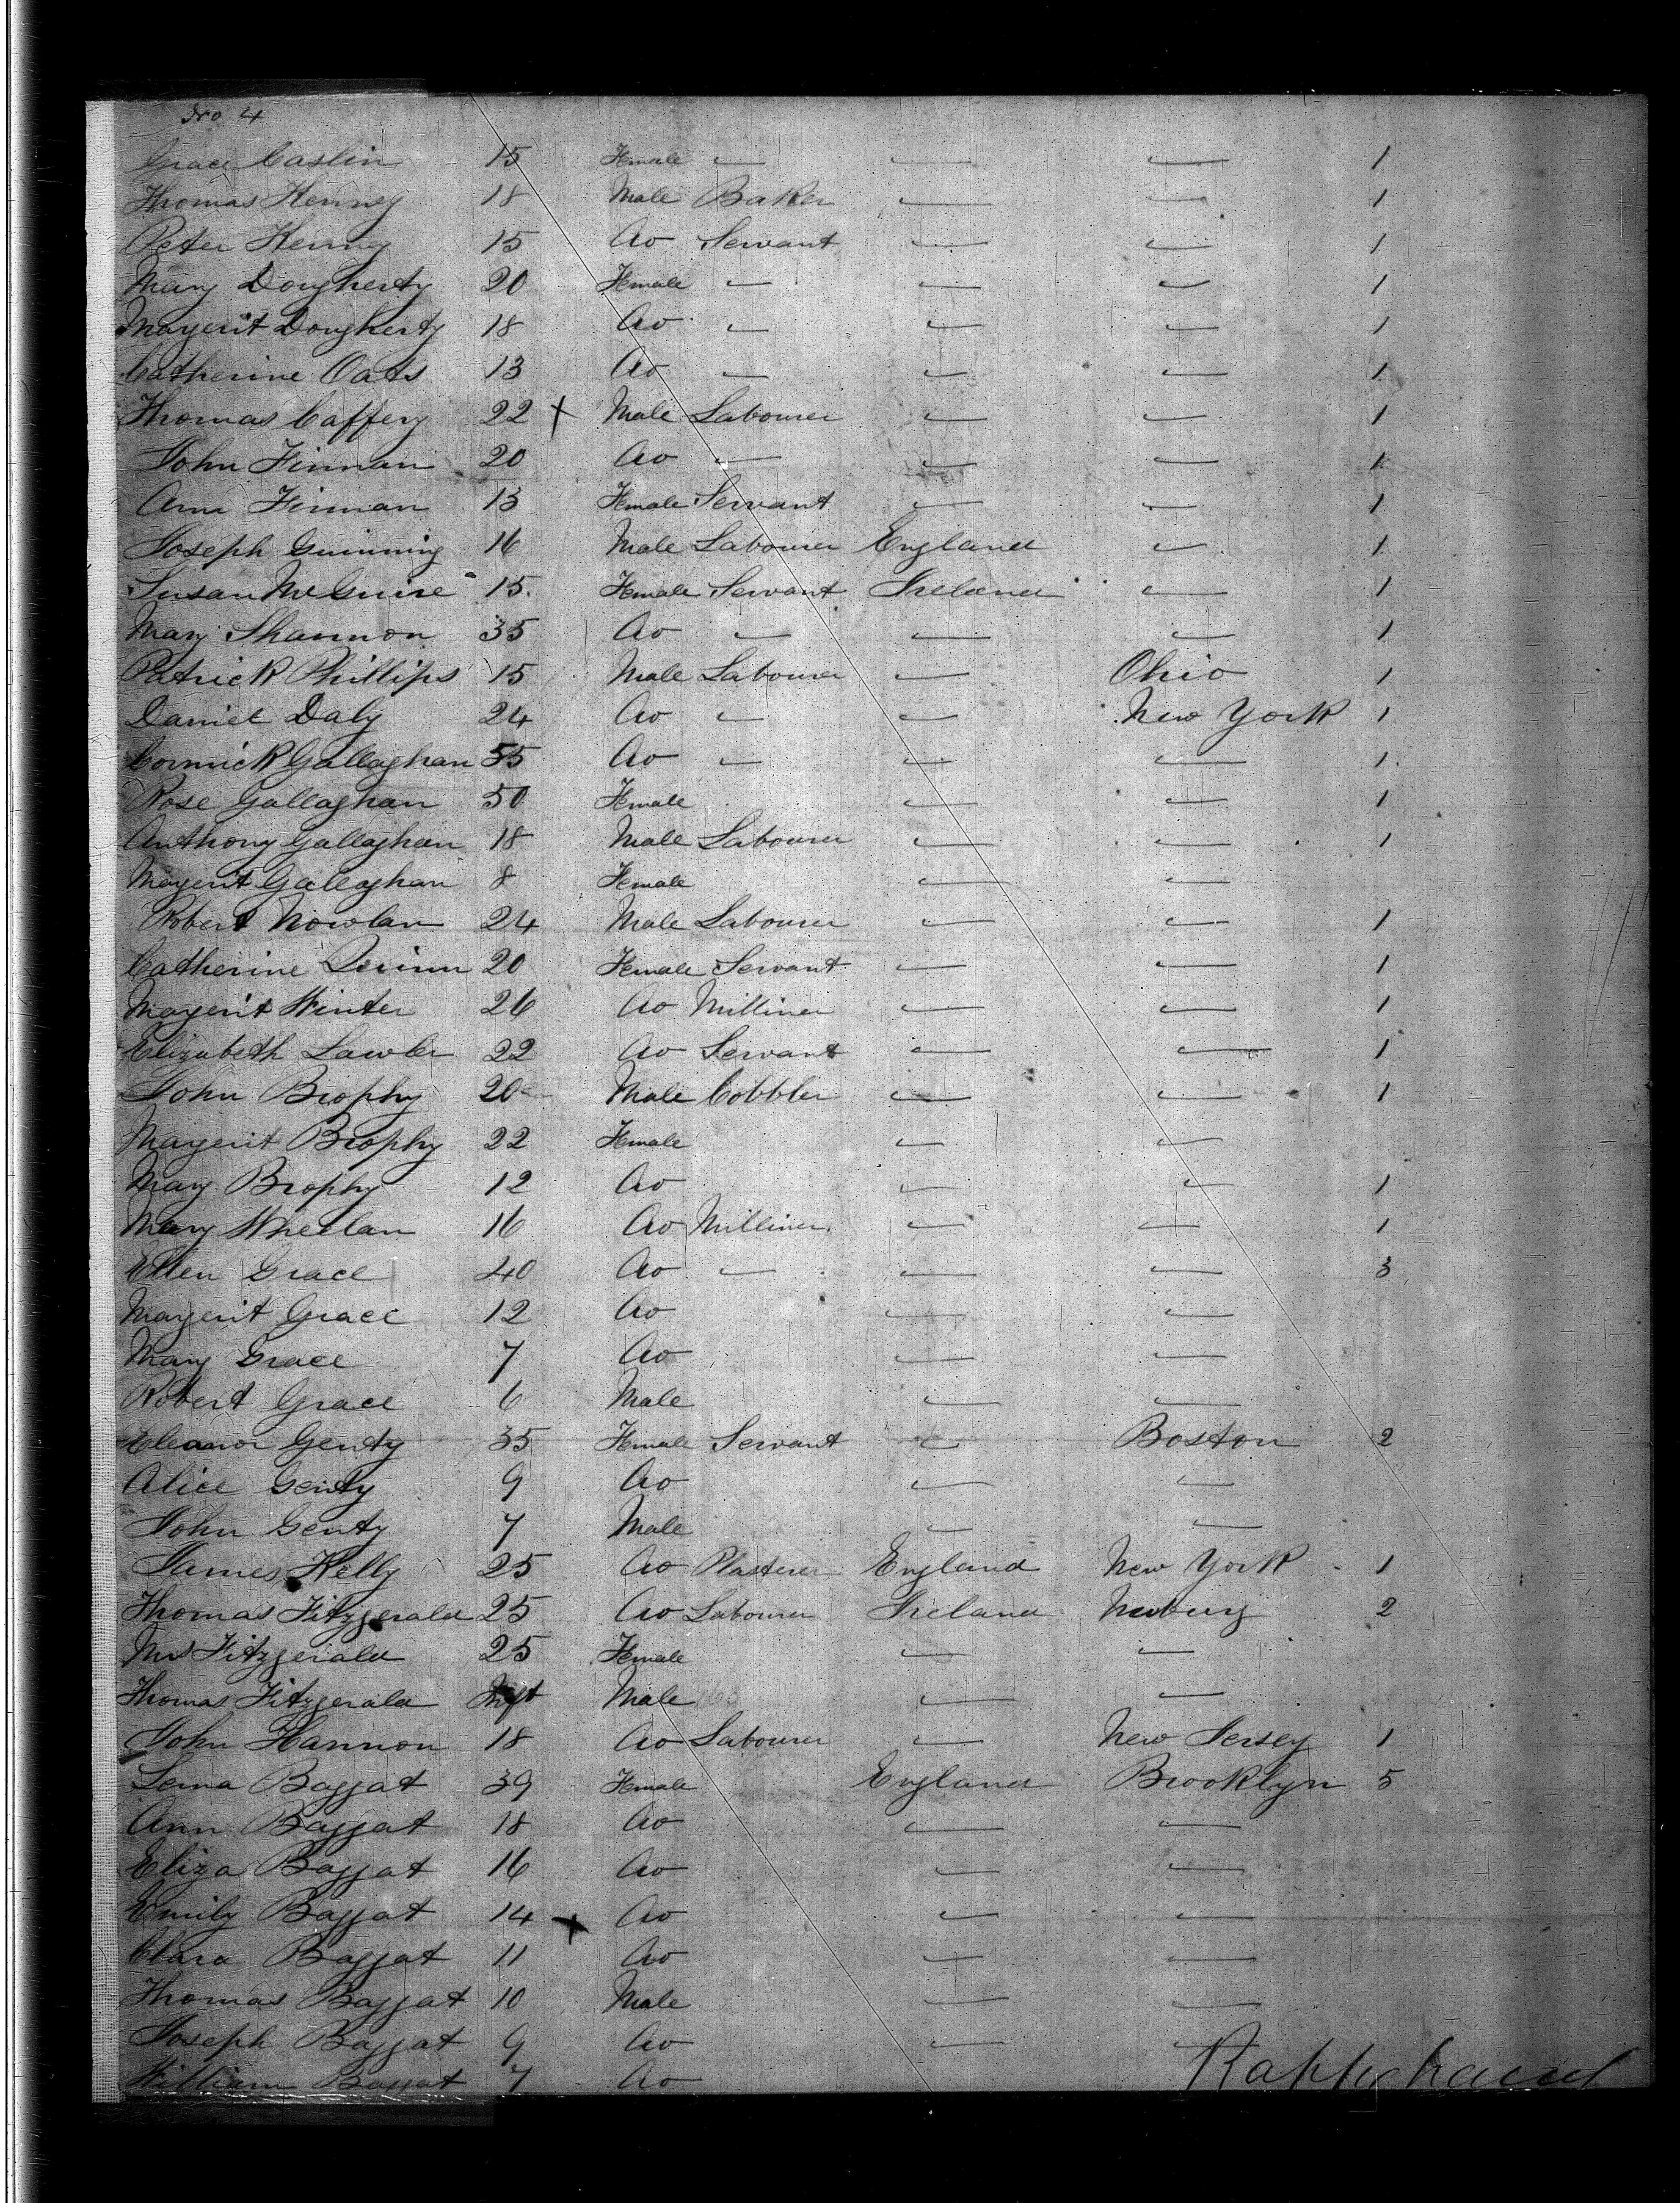 No 4
Grace Caslin 15 Female — — — 1
Thomas Kenney 18 Male Baker — — 1
Peter Kenny 15 Do Servant — — 1
Mary Dougherty 20 Female — — — 1
Mayerit Dougherty 18 Do — — — 1
Catherine Oats 13 Do — — — 1
Thomas Caffery 22 X Male Labourer — — 1
John Finnan 20 Do — — — 1
Ann Finnan 13 Female Servant — — 1
Joseph Guinning 16 Male Labourer England — 1
Susan McGuire 15 Female Servant Ireland — 1
Mary Shannon 35 Do — — — 1
Patrick Phillips 15 Male Labourer — Ohio 1
Daniel Daly 24 Do — — New York 1
Cormick Gallaghan 55 Do — — — 1
Rose Gallaghan 50 Female — — 1
Anthony Gallaghan 18 Male Labourer — — 1
Mayerit Gallaghan 8 Female — —
Robert Nowlan 24 Male Labourer — — 1
Catherine Quinn 20 Female Servant — — 1
Mayerit Winter 26 Do Milliner — — 1
Elizabeth Lawler 22 Do Servant — — 1
John Brophy 20 Male Cobbler — — 1
Mayerit Brophy 22 Female — —
Mary Brophy 12 Do — — 1
Mary Wheelan 16 Do Milliner — — 1
Ellen Grace 40 Do — — — 3
Mayerit Grace 12 Do — —
Mary Grace 7 Do — —
Robert Grace 6 Male — —
Eleanor Genty 35 Female Servant — Boston 2
Alice Genty 9 Do — —
John Genty 7 Male — —
James Kelly 25 Do Plasterer England New York 1
Thomas Fitzgerald 25 Do Labourer Ireland Newburg 2
Mrs Fitzgerald 25 Female — —
Thomas Fitzgerald Inft Male — —
John Hannon 18 Do Labourer — New Jersey 1
Lema Baggat 39 Female England Brooklyn 5
Ann Baggat 18 Do — —
Eliza Baggat 16 Do — —
Emily Baggat 14 X Do — —
Clara Baggat 11 Do — —
Thomas Baggat 10 Male — —
Joseph Baggat 9 Do — —
William Baggat 7 Do —